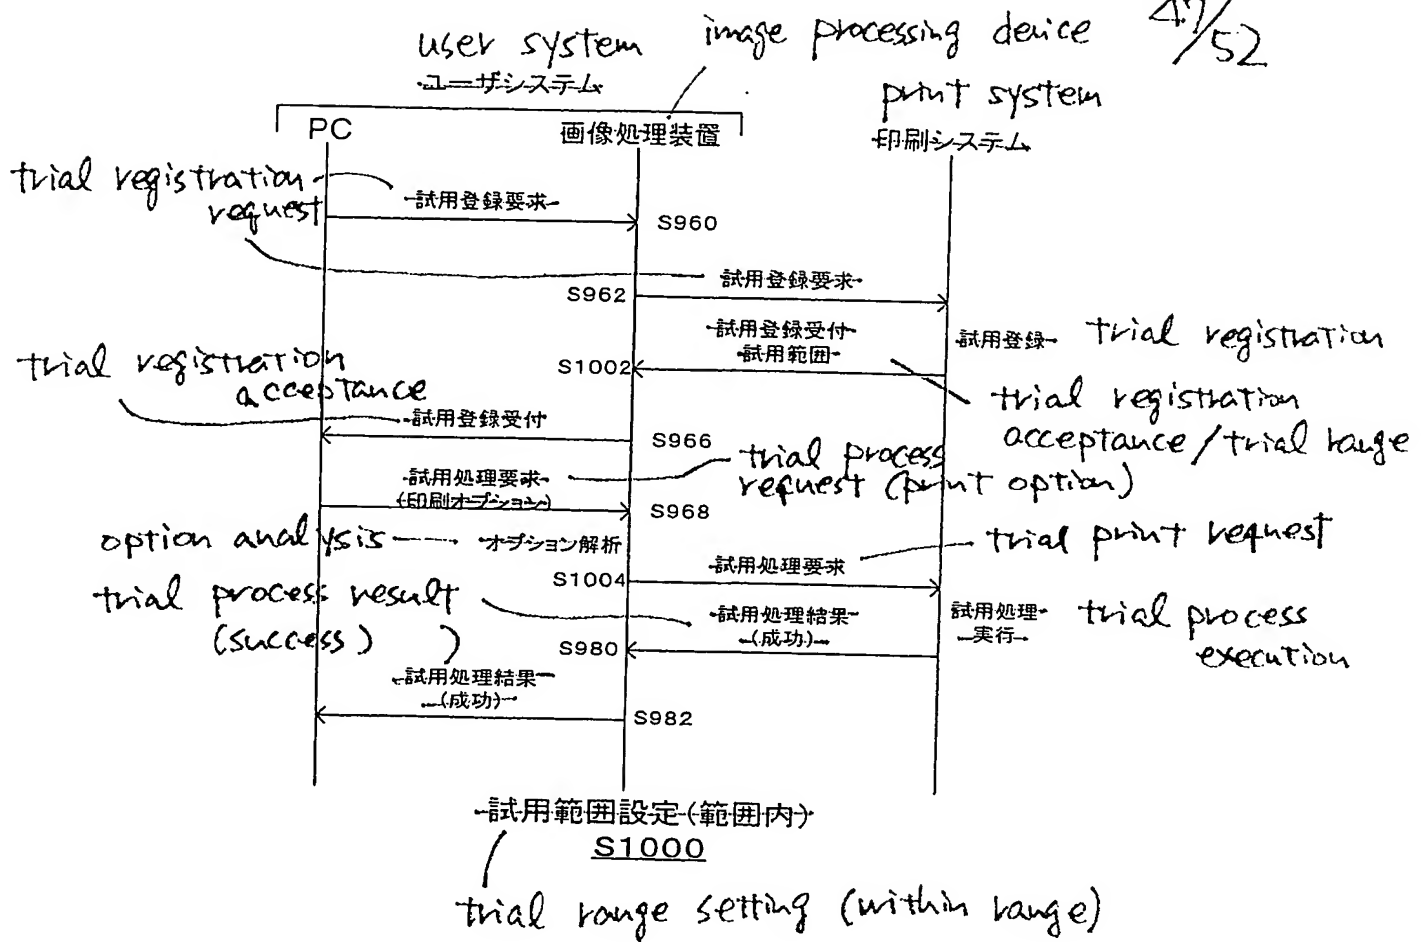 47/52
user system
image processing device
ユーザシステム
print system
PC
画像処理装置
印刷システム
trial registration
request
試用登録要求
S960
試用登録要求
S962
試用登録受付
試用範囲
試用登録
trial registration
S1002
trial registration
acceptance
trial registration
acceptance/trial range
試用登録受付
S966
試用処理要求
(印刷オプション)
trial process
request (print option)
S968
option analysis
オプション解析
試用処理要求
trial print request
S1004
trial process result
(success)
)
試用処理結果
(成功)
試用処理
実行
trial process
execution
S980
試用処理結果
(成功)
S982
試用範囲設定(範囲内)
S1000
trial range setting (within range)